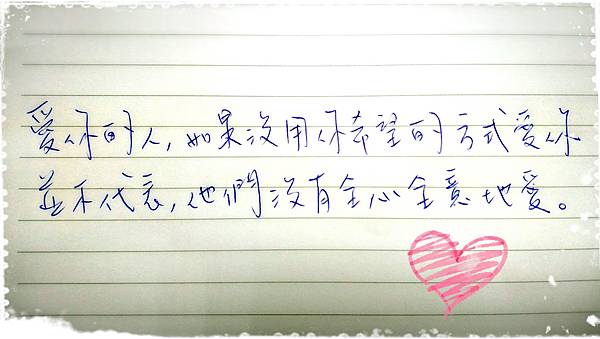 愛你的人,如果沒用你希望的方式愛你
並不代表,他們沒有全心全意地愛。